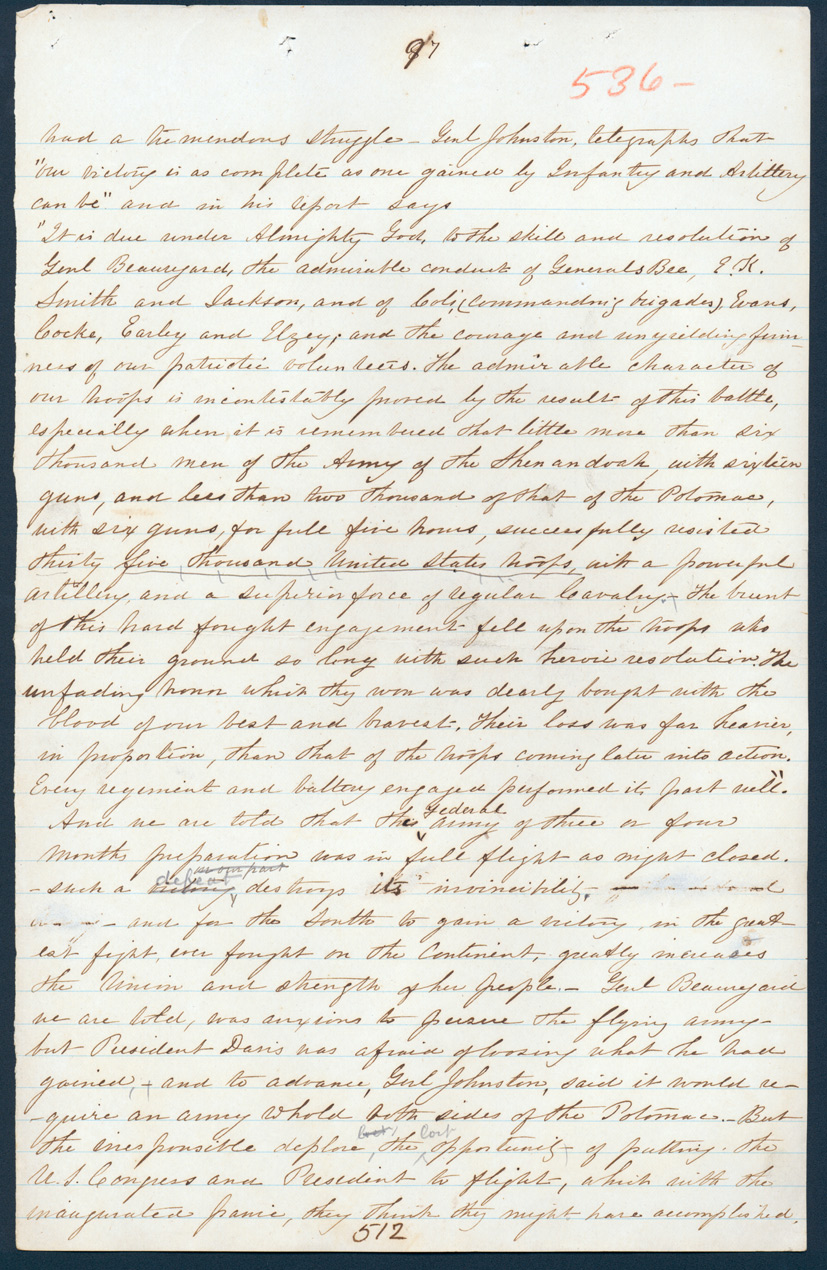 97
536-
had a tremendous struggle - Genl Johnston, telegraphs that
"our victory is as complete as one gained by Infantry and Artillery
can be" and in his report says
"It is due under Almighty God, to the skill and resolution of
Genl Beauregard, the admirable conduct of Generals Bee, E.K.
Smith and Jackson, and of Cols, (commanding brigades), Evans,
Cocke, Earley and Elzey; and the courage and unyielding firm-
ness of our patriotic volunteers. The admirable character of
our troops is incontestably proved by the result of this battle,
especially when it is remembered that little more than six
thousand men of the Army of the Shenandoah, with sixteen
guns, and less than two thousand of that of the Potomac,
with six guns, for full five hours, successfully resisted
thirty five thousand United States troops, with a powerful
artillery, and a superior force of regular Cavalry - The brunt
of this hard fought engagement fell upon the troops who
held their ground so long with such heroic resolution. The
unfading honor which they won was dearly bought with the
blood of our best and bravest. Their loss was far heavier,
in proportion, than that of the troops coming later into action.
Every regiment and battery engaged performed its part well."
And we are told that the Federal army of three or four
months preparation was in full flight as night closed.
on our part
- such a victory defeat destroys its invincibility -
- and for the South to gain a victory, in the great-
est fight, ever fought on the Continent, greatly increases
the Union and strength of her people. - Genl Beauregard
we are told, was anxious to persue the flying army -
but President Davis was afraid of loosing what he had
gained, - and to advance, Genl Johnston, said it would re-
-quire an army to hold both sides of the Potomac. - But
the irresponsible deplore, the lost opportunity - of putting the
U.S. Congress and President to flight, which with the
inaugurated panic, they think they might have accomplished.
512